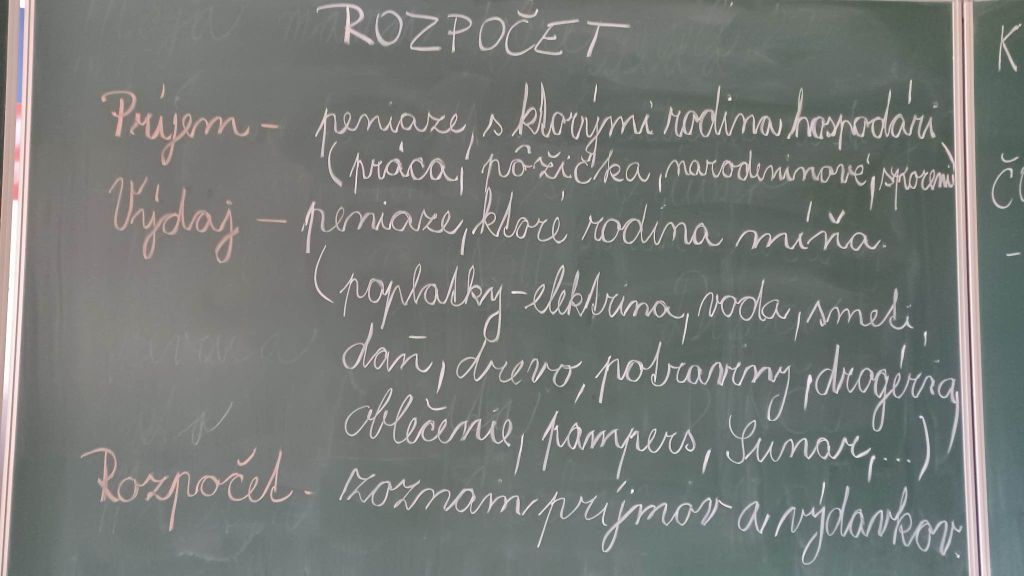 ROZPOČET
Príjem - peniaze, s ktorými rodina hospodári
(práca, pôžička, narodeninové, sporenie)
Výdaj - peniaze, ktoré rodina míňa.
(poplatky - elektrina, voda, smeti,
daň, drevo, potraviny, drogéria,
oblečenie, pampers, Sunar,...)
Rozpočet - zoznam príjmov a výdavkov.
K
-